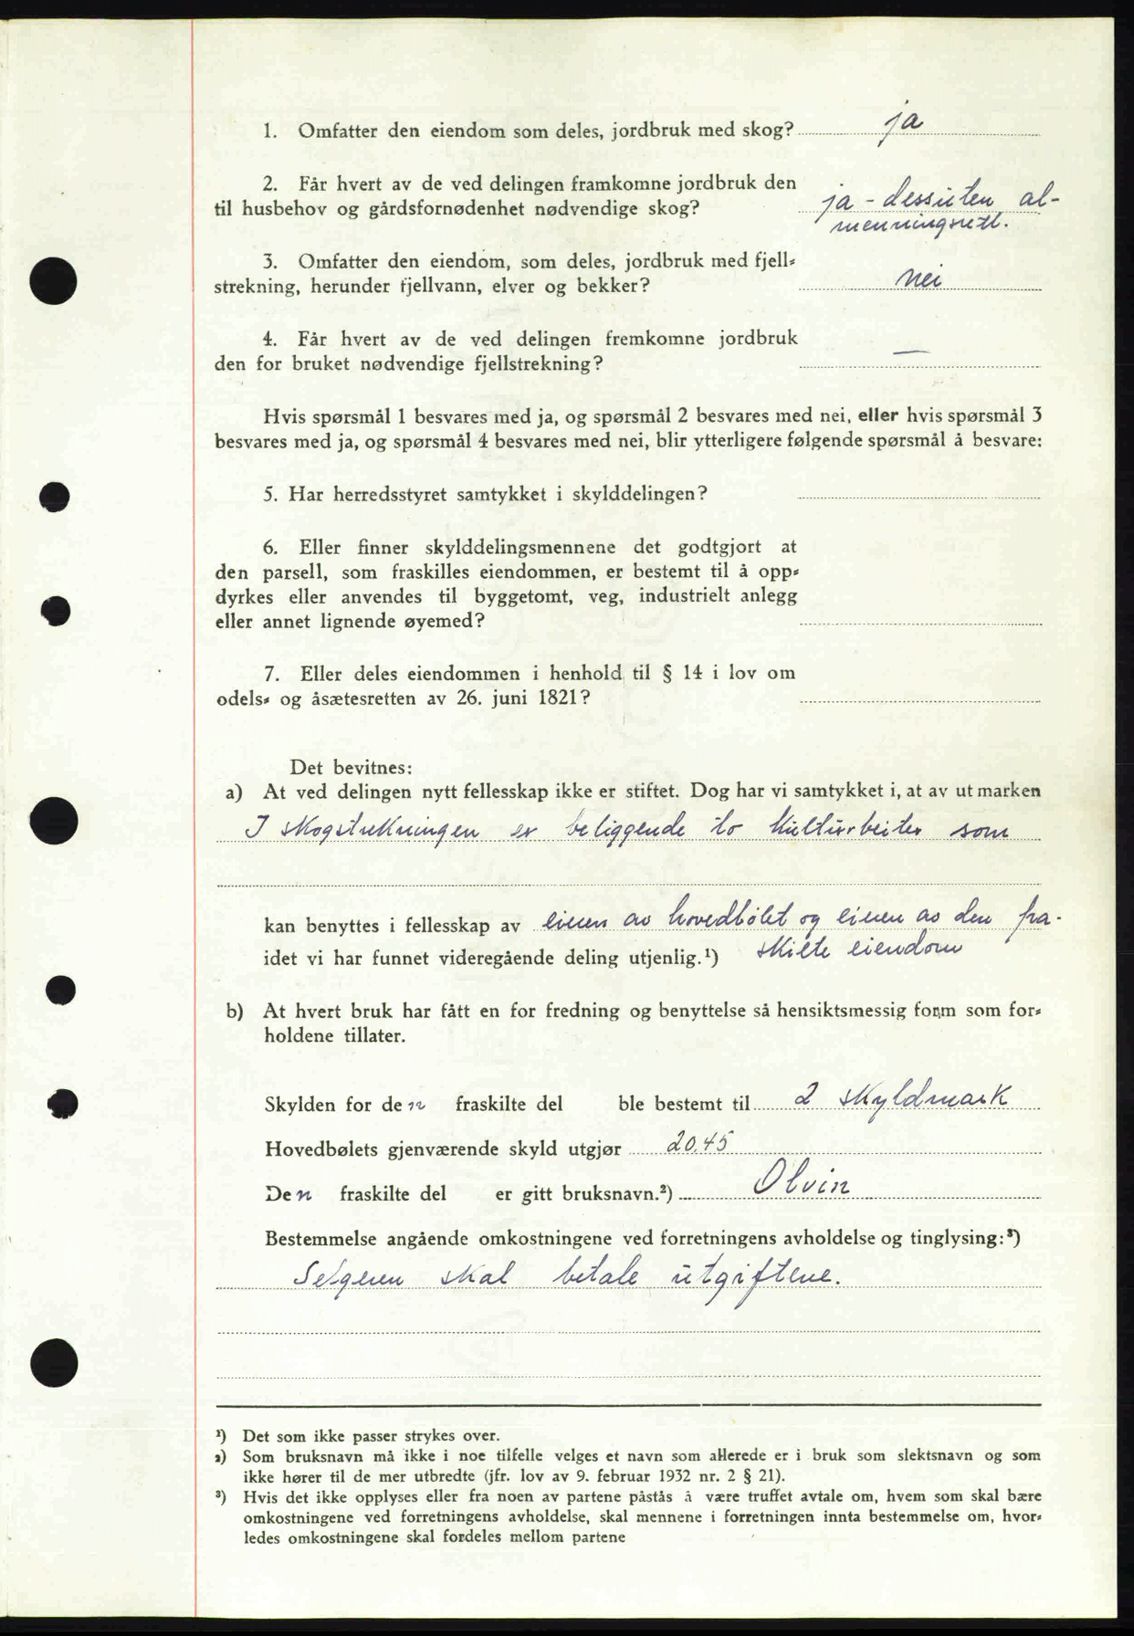 1. Omfatter den eiendom som deles, jordbruk med skog? ja
2. Får hvert av de ved delingen framkomne jordbruk den
til husbehov og gårdsfornødenhet nødvendige skog? ja - dessuten al-
menningsrett.
3. Omfatter den eiendom, som deles, jordbruk med fjell-
strekning, herunder fjellvann, elver og bekker? nei
4. Får hvert av de ved delingen fremkomne jordbruk
den for bruket nødvendige fjellstrekning? —
Hvis spørsmål 1 besvares med ja, og spørsmål 2 besvares med nei, eller hvis spørsmål 3
besvares med ja, og spørsmål 4 besvares med nei, blir ytterligere følgende spørsmål å besvare:
5. Har herredsstyret samtykket i skylddelingen?
6. Eller finner skylddelingsmennene det godtgjort at
den parsell, som fraskilles eiendommen, er bestemt til å opp-
dyrkes eller anvendes til byggetomt, veg, industrielt anlegg
eller annet lignende øyemed?
7. Eller deles eiendommen i henhold til § 14 i lov om
odels- og åsætesretten av 26. juni 1821?
Det bevitnes:
a) At ved delingen nytt fellesskap ikke er stiftet. Dog har vi samtykket i, at av utmarken
I skogstrekningen er beliggende to kulturbeiter som
kan benyttes i fellesskap av eieren av hovedbølet og eieren av den fra-
idet vi har funnet videregående deling utjenlig.¹) skilte eiendom
b) At hvert bruk har fått en for fredning og benyttelse så hensiktsmessig form som for-
holdene tillater.
Skylden for den fraskilte del ble bestemt til 2 skyldmark
Hovedbølets gjenværende skyld utgjør 20.45
Den fraskilte del er gitt bruksnavn.²) Olvin
Bestemmelse angående omkostningene ved forretningens avholdelse og tinglysing:³)
Selgeren skal betale utgiftene.
¹) Det som ikke passer strykes over.
²) Som bruksnavn må ikke i noe tilfelle velges et navn som allerede er i bruk som slektsnavn og som
ikke hører til de mer utbredte (jfr. lov av 9. februar 1932 nr. 2 § 21).
³) Hvis det ikke opplyses eller fra noen av partene påstås å være truffet avtale om, hvem som skal bære
omkostningene ved forretningens avholdelse, skal mennene i forretningen innta bestemmelse om, hvor-
ledes omkostningene skal fordeles mellom partene